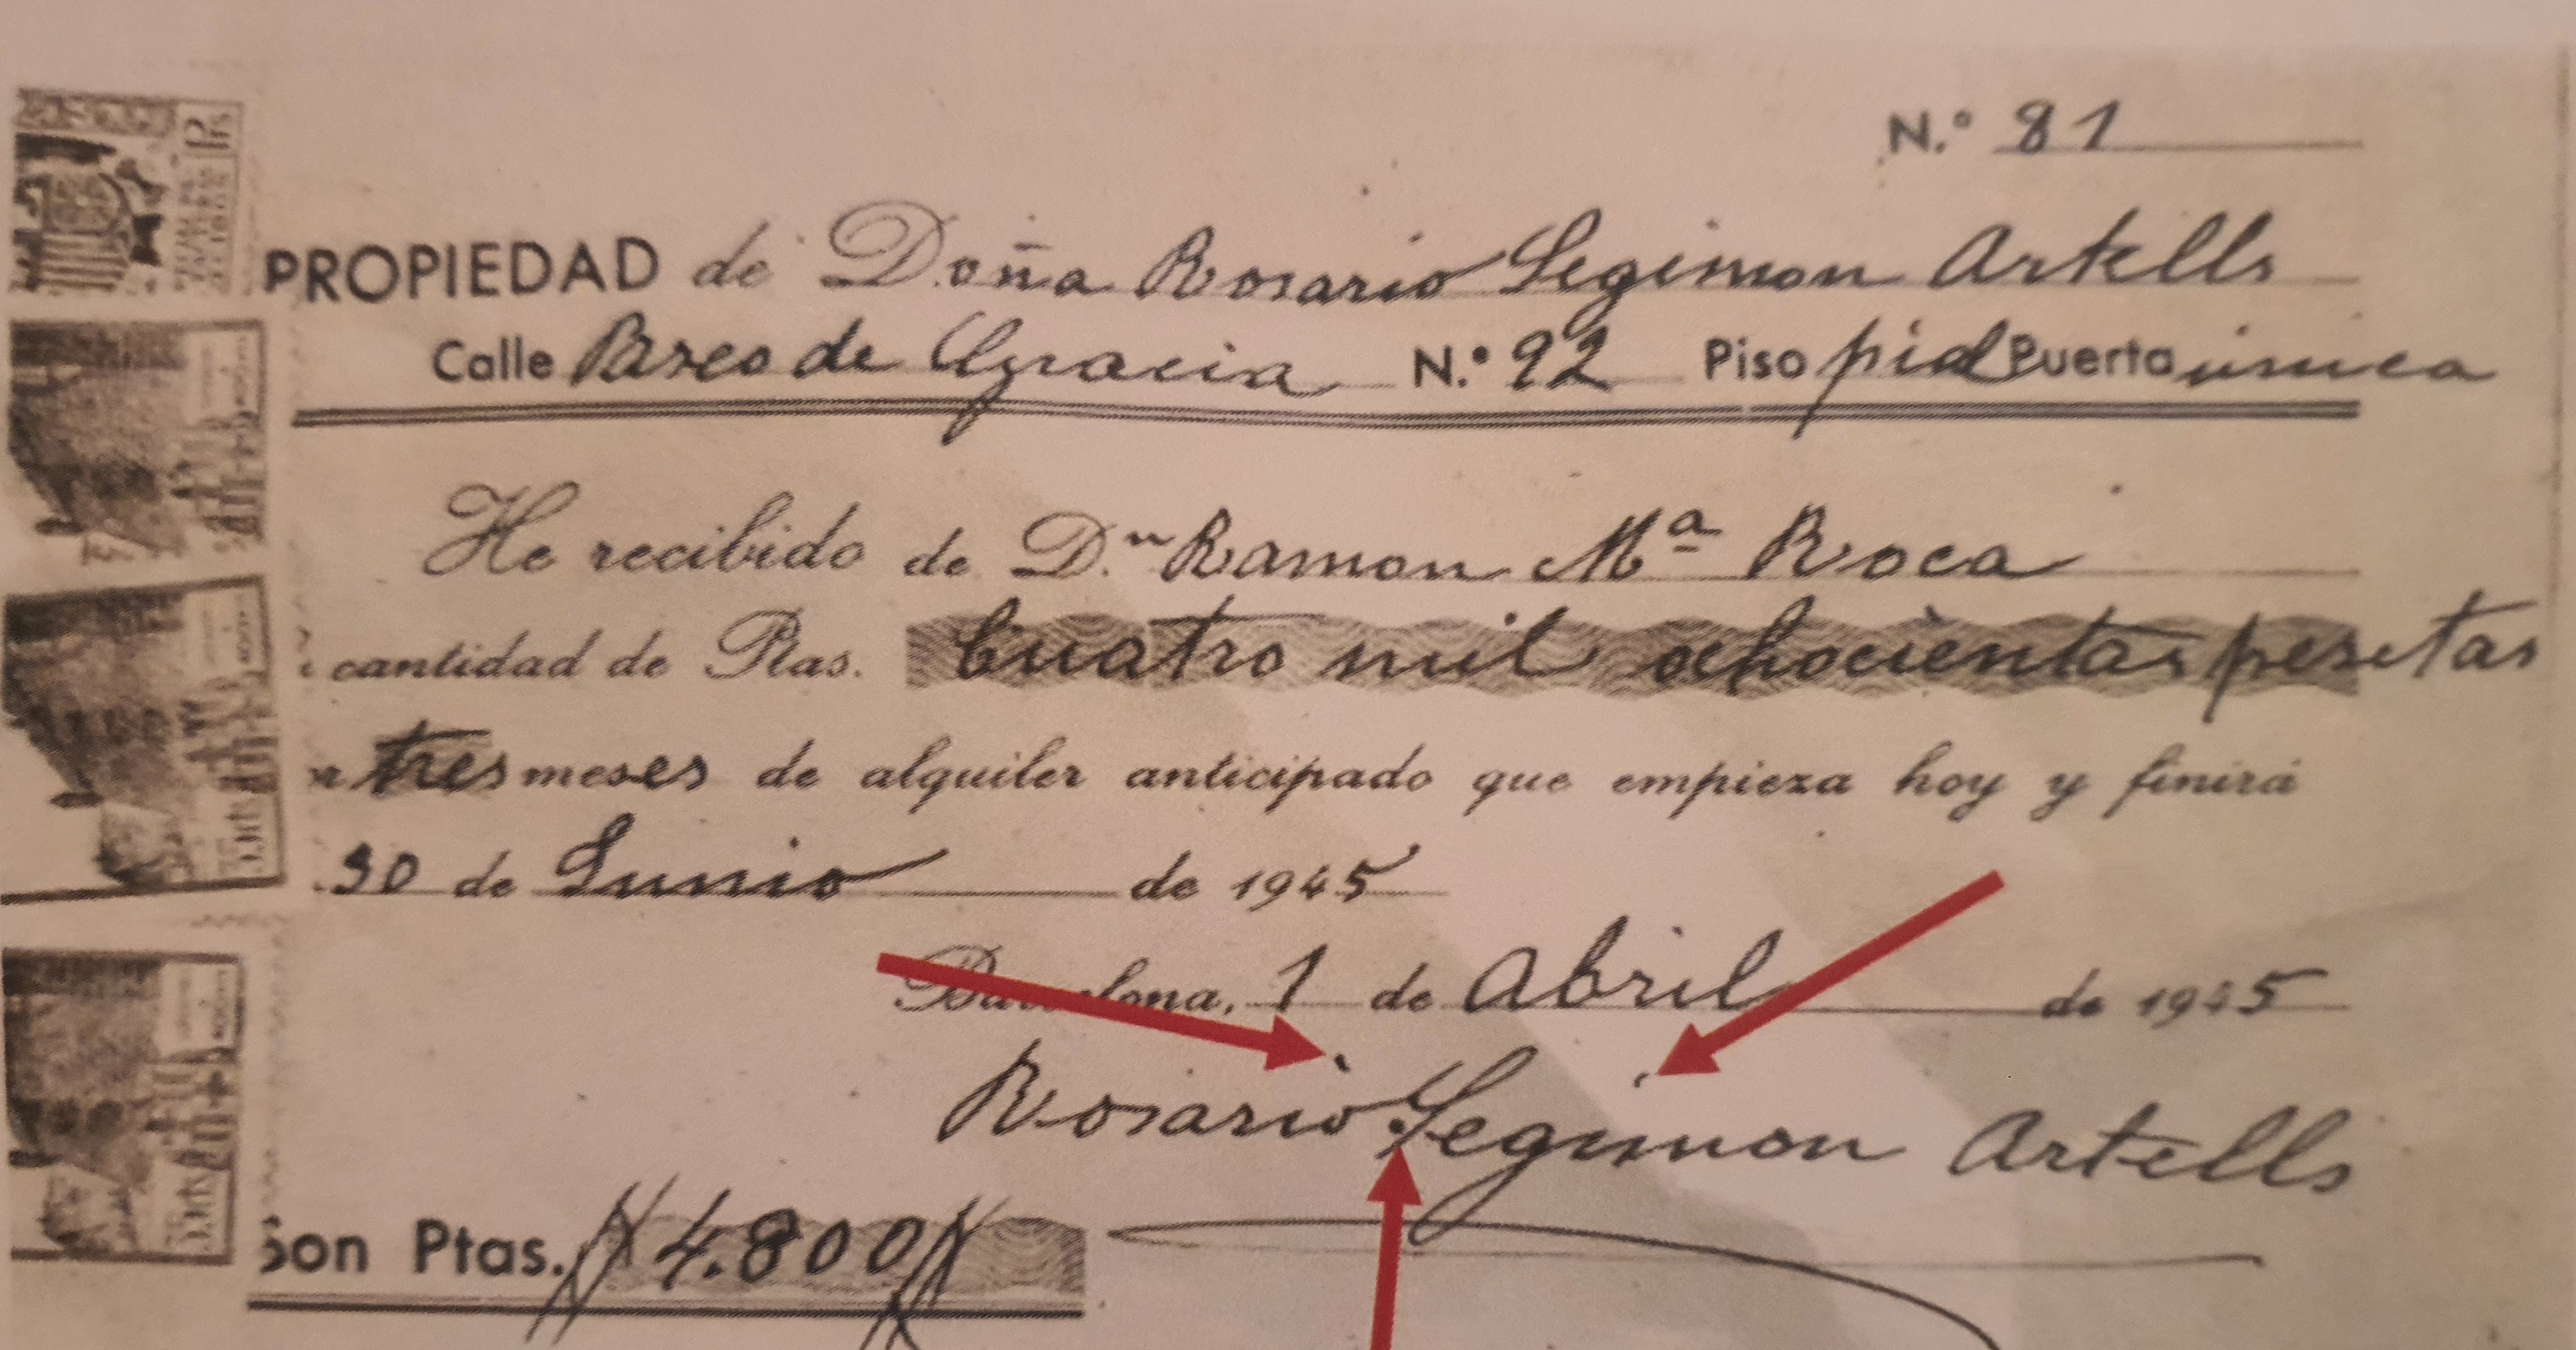 N.º 81
PROPIEDAD de Doña Rosario Segimon Artells
Calle Paseo de Gracia N.º 92 Piso pral Puerta única
He recibido de D.n Ramon Mª Roca
cantidad de Ptas. Cuatro mil ochocientas pesetas
tres meses de alquiler anticipado que empieza hoy y finirá
30 de Junio de 1945
Barcelona, 1 de Abril de 1945
Rosario Segimon Artells
Son Ptas. 4.800